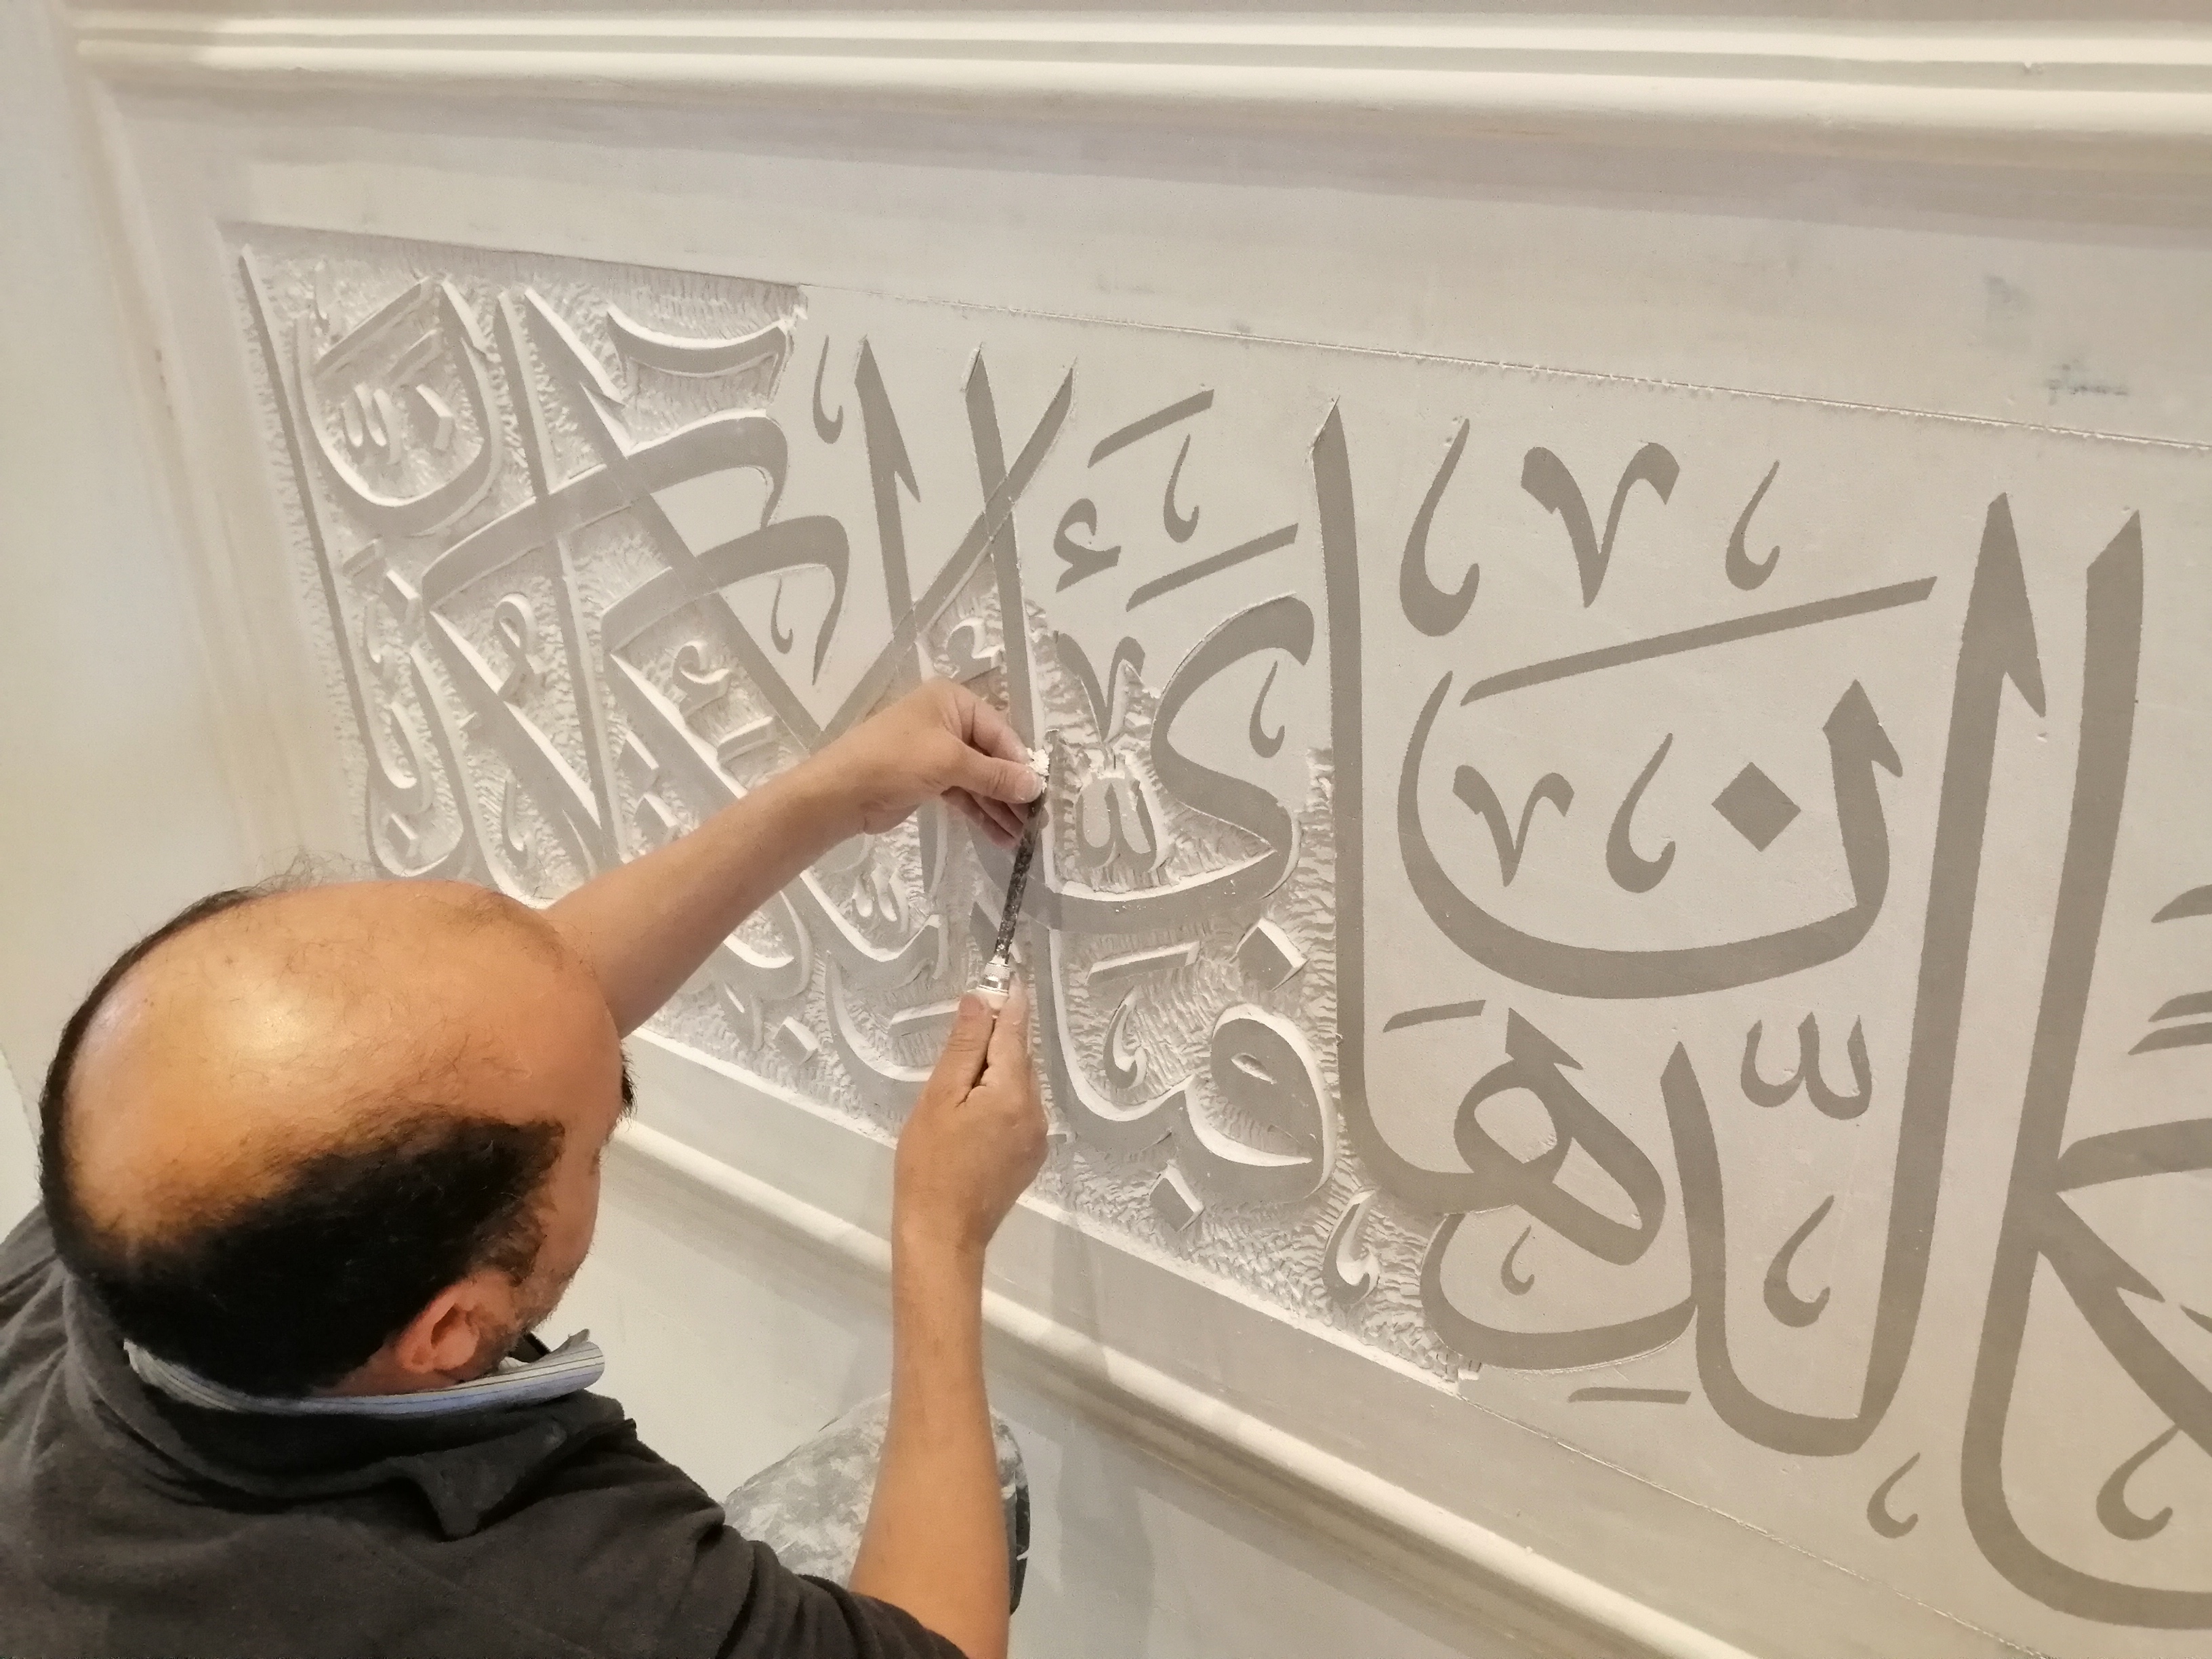 كَالدِّهَانِ فَبِأَيِّ آلَاءِ رَبِّكُمَا تُكَذِّبَانِ